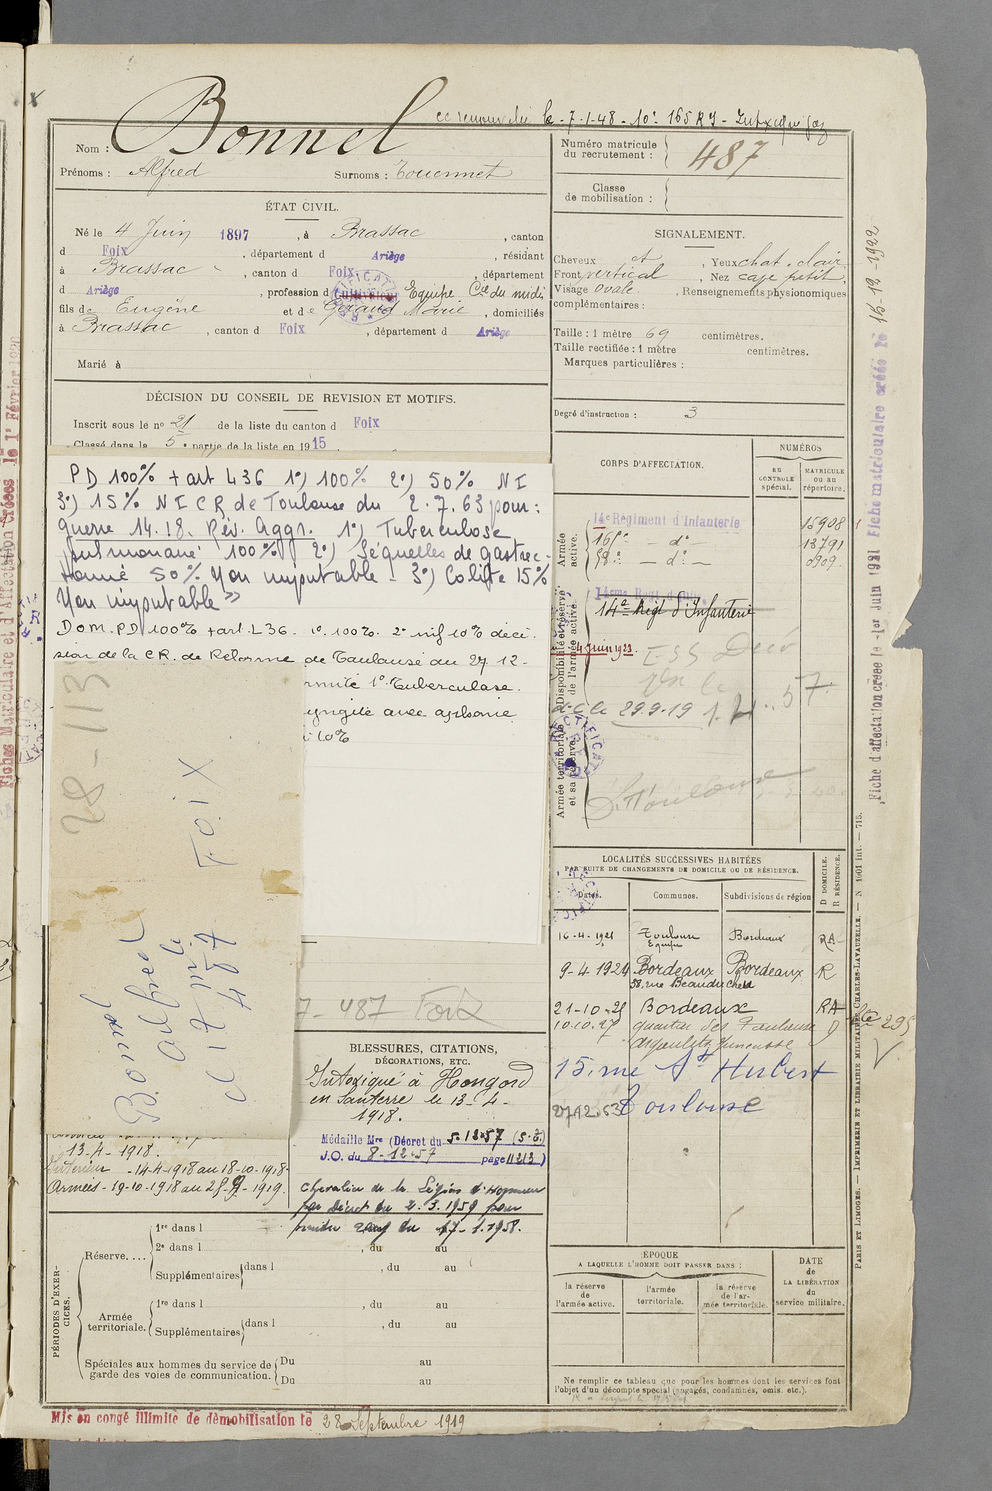 Bonnel
le 7-1-48
Nom :
Prénoms : Alfred Surnoms : Touennet
Numéro matricule
du recrutement : 487
Classe
de mobilisation :
ÉTAT CIVIL.
Né le 4 Juin 1897, à Brassac, canton
d Foix, département d Ariège, résidant
à Brassac, canton d Foix, département
d Ariège, profession d Cultivateur Equipe. Cie du midi
fils de Eugène et de Géraud Marie, domiciliés
à Brassac, canton d Foix, département d Ariège
Marié à
SIGNALEMENT.
Cheveux ct, Yeux chat. clair
Front vertical, Nez cave petit
Visage ovale, Renseignements physionomiques
complémentaires :
Taille : 1 mètre 69 centimètres.
Taille rectifiée : 1 mètre centimètres.
Marques particulières :
Degré d'instruction : 3
DÉCISION DU CONSEIL DE REVISION ET MOTIFS.
Inscrit sous le no 21 de la liste du canton d Foix
Classé dans la 5e partie de la liste en 1915
PD 100% + art L36 1°) 100% 2°) 50% NI
3°) 15% NI CR de Toulouse du 2.7.63 pour :
guerre 14.18. Rév. Aggr. 1°) Tuberculose
pulmonaire 100% 2°) Séquelles de gastrec-
tomie 50% Non imputable - 3°) Colite 15%
Non imputable »
Dom. PD 100% + art. L36. 1° 100% 2° inf 10% déci-
sion de la CR. de Réforme de Toulouse du 27-12-
rmité 1° Tuberculose.
yngite avec aphonie
10%
28-113
FOIX
Bonnel
Alfred
Cl 17 Mle
487
7-487 Foix
CORPS D'AFFECTATION.
NUMÉROS
AU
CONTROLE
spécial.
MATRICULE
OU AU
répertoire.
Armée
active.
14e Régiment d'Infanterie 15908
16e — do — 13791
59e — do — 0909
Disponibilité et réserve
de l'armée active.
14e Régt d'Infanterie
4 Juin 1923
29.9.19
Armée territoriale
et sa réserve.
Toulouse
LOCALITÉS SUCCESSIVES HABITÉES
PAR SUITE DE CHANGEMENTS DE DOMICILE OU DE RÉSIDENCE.
Dates. Communes. Subdivisions de région
D DOMICILE.
R RÉSIDENCE.
16-4-1921 Toulouse Bordeaux RA
9-4-1924 Bordeaux Bordeaux R
58, rue Beaudu cheu
21-10-25 Bordeaux RA
10.10.27 quartier des Toulouse D
15, rue St Hubert
Toulouse
BLESSURES, CITATIONS,
DÉCORATIONS, ETC.
Intoxiqué à Hangard
en Santerre le 13-4-
1918.
Médaille Mre (Décret du 5.12.57
J.O. du 8-12-57 page 11213)
Chevalier de la Légion d'Honneur
par décret du 2.3.1959 pour
prendre rang du 17-1.1958.
13-4-1918.
Intérieur -14-4-1918 au 18-10-1918-
Armées -19-10-1918 au 28-9-1919.
PÉRIODES D'EXER-
CICES.
Réserve....
1re dans l
2e dans l , du au
Supplémentaires dans l , du au
Armée
territoriale.
1re dans l , du au
Supplémentaires dans l , du au
Spéciales aux hommes du service de
garde des voies de communication.
Du au
Du au
ÉPOQUE
A LAQUELLE L'HOMME DOIT PASSER DANS :
la réserve
de
l'armée active.
l'armée
territoriale.
la réserve
de l'ar-
mée territoriale.
DATE
de
LA LIBÉRATION
du
service militaire.
Ne remplir ce tableau que pour les hommes dont les services font
l'objet d'un décompte spécial (engagés, condamnés, omis, etc.).
Mis en congé illimité de démobilisation le 28 Septembre 1919
Fiche d'affectation créée le 1er Juin 1921 Fiche matriculaire créée le 16-19-1922
PARIS ET LIMOGES. — IMPRIMERIE ET LIBRAIRIE MILITAIRES CHARLES-LAVAUZELLE. — N 1001 Int. — 715.
295
Fiches Matriculaire et d'Affectation Créées le 1er Février 1920